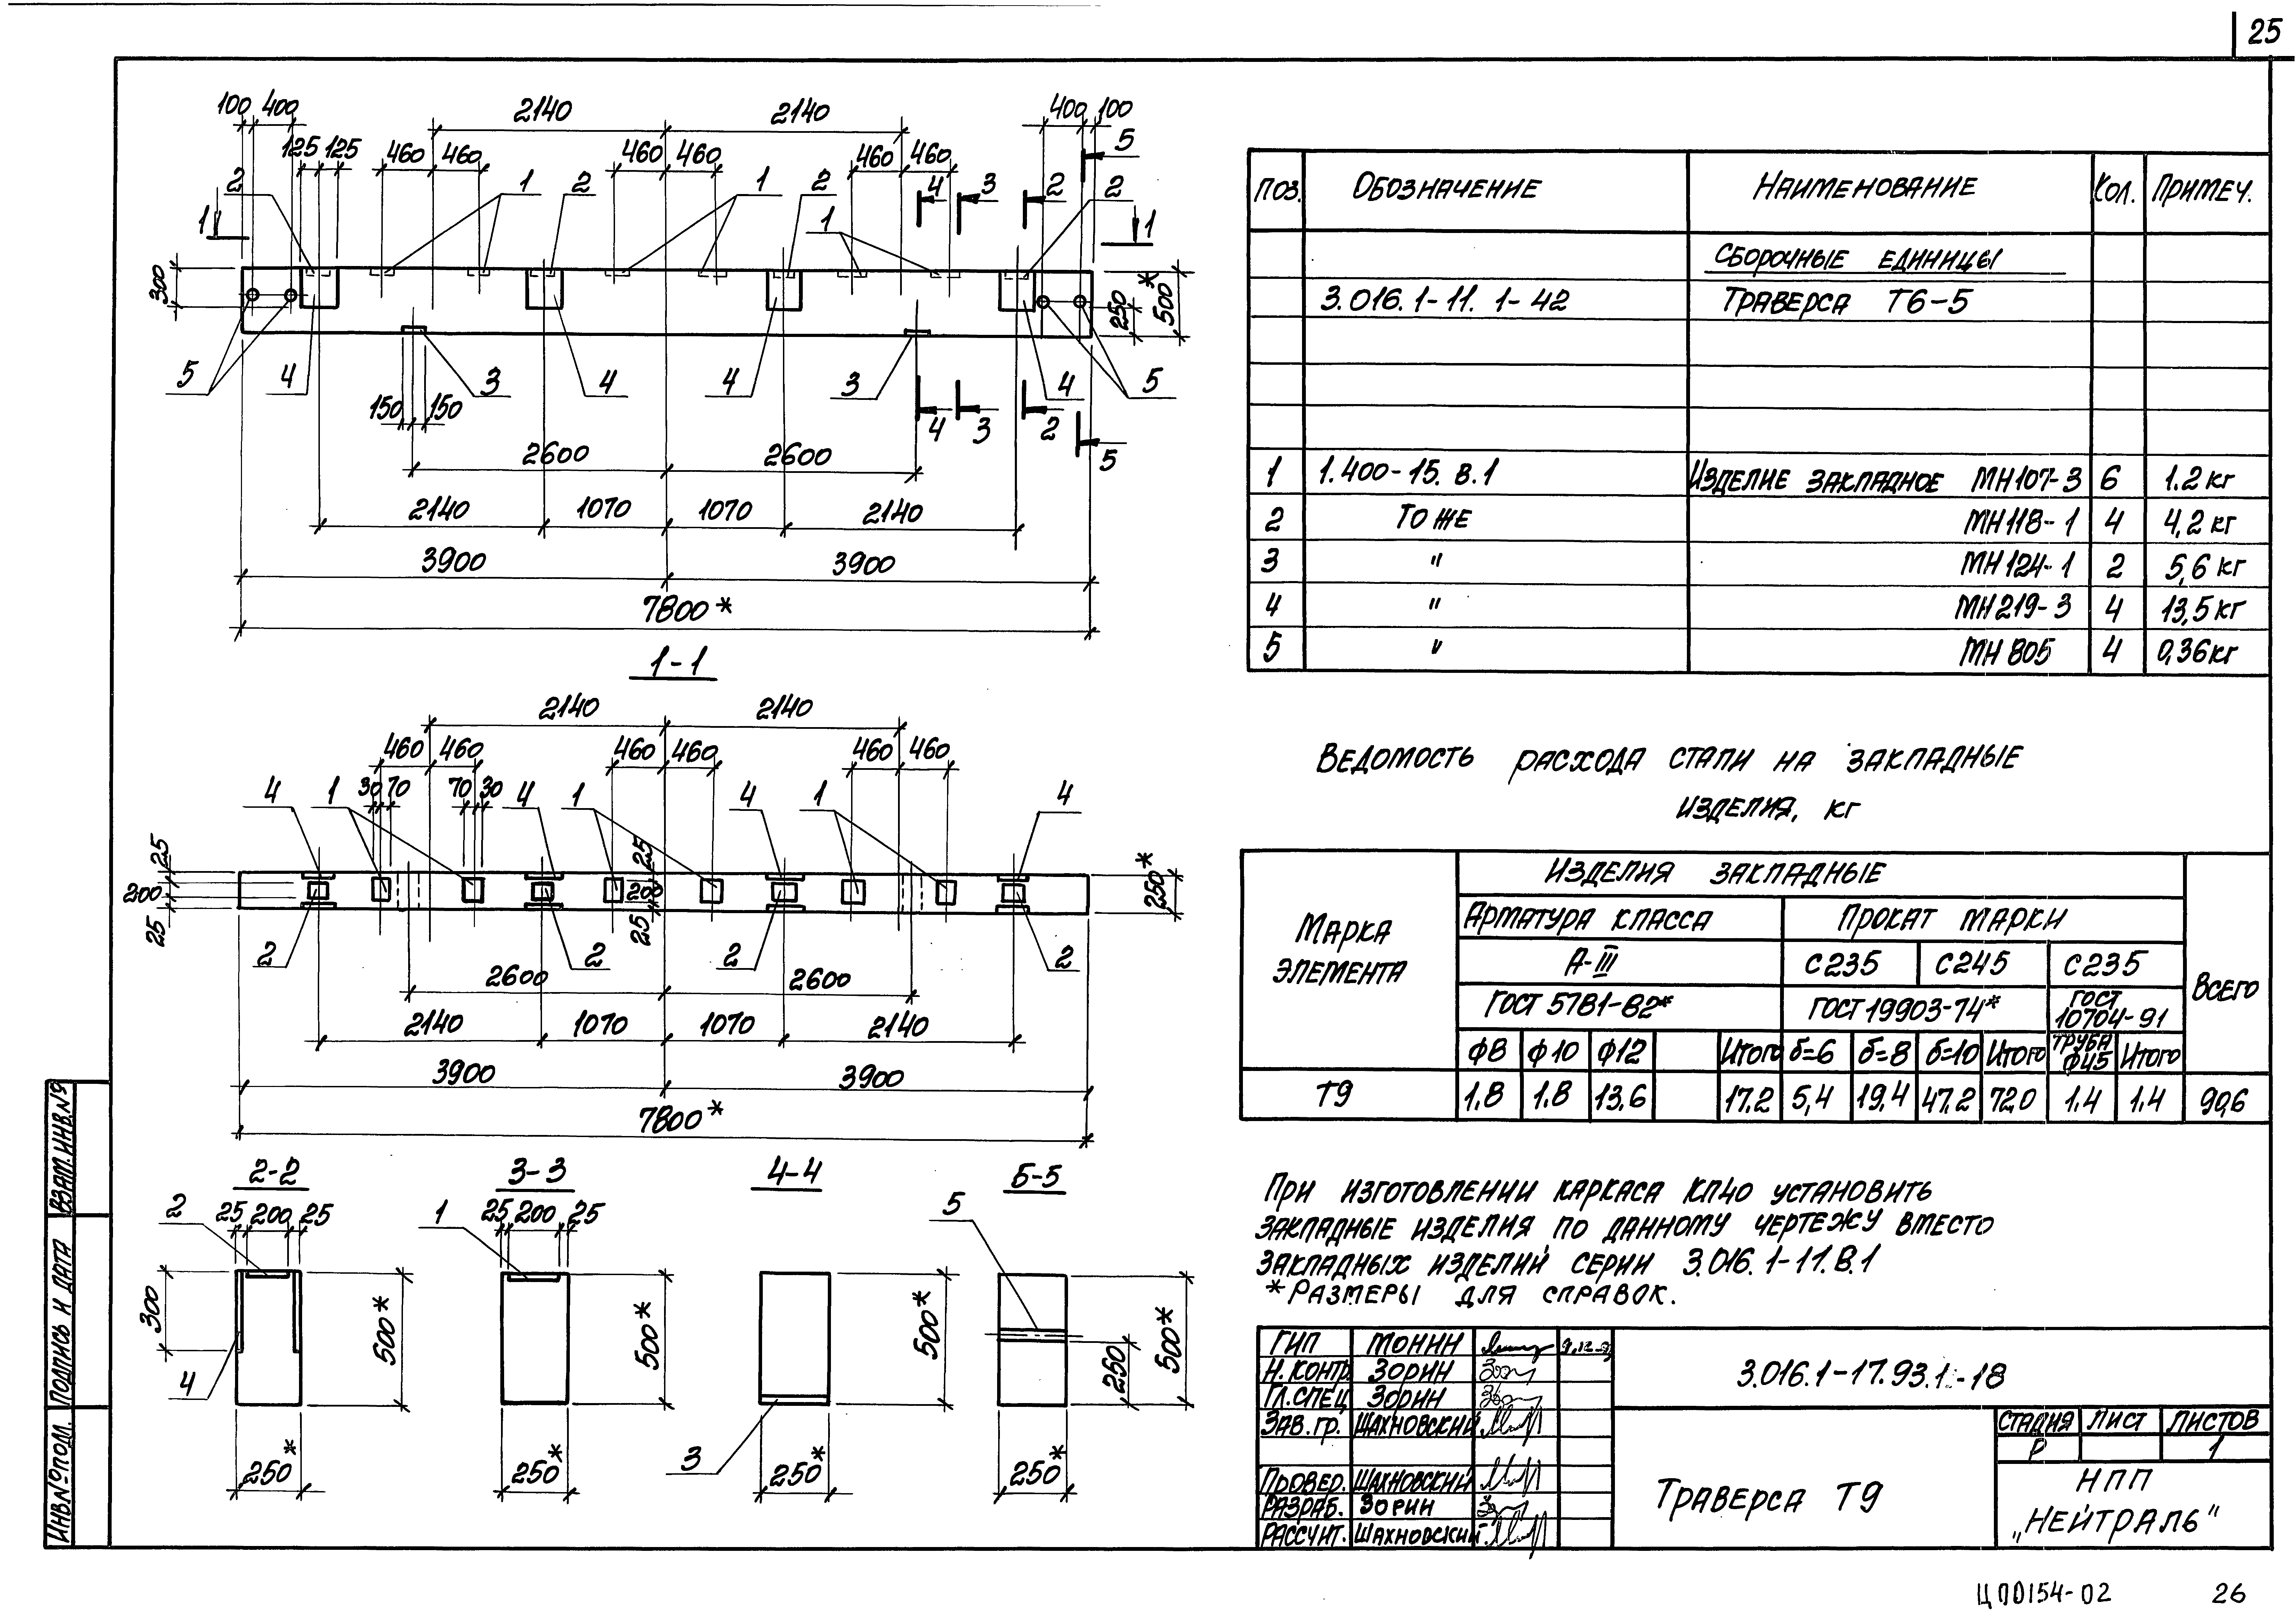 25
100 400 2140 2140 400 100
125 125 460 460 460 460 460 460 5
2 1 2 1 2 1 4 3 2 2
1 1
300 250 500*
5 4 3 4 4 3 4 5
150 150 4 3 2
2600 2600 5
2140 1070 1070 2140
3900 3900
7800*
1-1
2140 2140
460 460 460 460 460 460
4 1 30 70 70 30 4 1 4 1 4
25 200 25 25 200 25 250*
2 2 2 2
2600 2600
2140 1070 1070 2140
3900 3900
7800*
2-2 3-3 4-4 5-5
2 25 200 25 1 25 200 25 5
300 500* 500* 500* 250 500*
4 3
250* 250* 250* 250*
ПОЗ. ОБОЗНАЧЕНИЕ НАИМЕНОВАНИЕ КОЛ. ПРИМЕЧ.
СБОРОЧНЫЕ ЕДИНИЦЫ
3.016.1-11.1-42 ТРАВЕРСА Т6-5
1 1.400-15.В.1 ИЗДЕЛИЕ ЗАКЛАДНОЕ МН107-3 6 1.2 кг
2 ТО ЖЕ МН118-1 4 4,2 кг
3 " МН124-1 2 5,6 кг
4 " МН219-3 4 13,5 кг
5 " МН805 4 0,36 кг
ВЕДОМОСТЬ РАСХОДА СТАЛИ НА ЗАКЛАДНЫЕ
ИЗДЕЛИЯ, КГ
МАРКА ЭЛЕМЕНТА ИЗДЕЛИЯ ЗАКЛАДНЫЕ ВСЕГО
АРМАТУРА КЛАССА ПРОКАТ МАРКИ
А-III С235 С245 С235
ГОСТ 5781-82* ГОСТ 19903-74* ГОСТ 10704-91
ф8 ф10 ф12 Итого б=6 б=8 б=10 Итого ТРУБА ф45 Итого
Т9 1.8 1.8 13.6 17.2 5,4 19,4 47.2 72.0 1.4 1.4 90,6
ПРИ ИЗГОТОВЛЕНИИ КАРКАСА КП40 УСТАНОВИТЬ
ЗАКЛАДНЫЕ ИЗДЕЛИЯ ПО ДАННОМУ ЧЕРТЕЖУ ВМЕСТО
ЗАКЛАДНЫХ ИЗДЕЛИЙ СЕРИИ 3.016.1-11.В.1
*РАЗМЕРЫ ДЛЯ СПРАВОК.
ГИП МОНИН
Н.КОНТР. ЗОРИН
ГЛ.СПЕЦ ЗОРИН
ЗАВ.ГР. ШАХНОВСКИЙ
ПРОВЕР. ШАХНОВСКИЙ
РАЗРАБ. ЗОРИН
РАССЧИТ. ШАХНОВСКИЙ
3.016.1-17.93.1-18
ТРАВЕРСА Т9
СТАДИЯ ЛИСТ ЛИСТОВ
Р 1
НПП
„НЕЙТРАЛЬ"
ВЗАМ.ИНВ.№
ПОДПИСЬ И ДАТА
ИНВ.№ПОДЛ.
ЦП0154-02 26